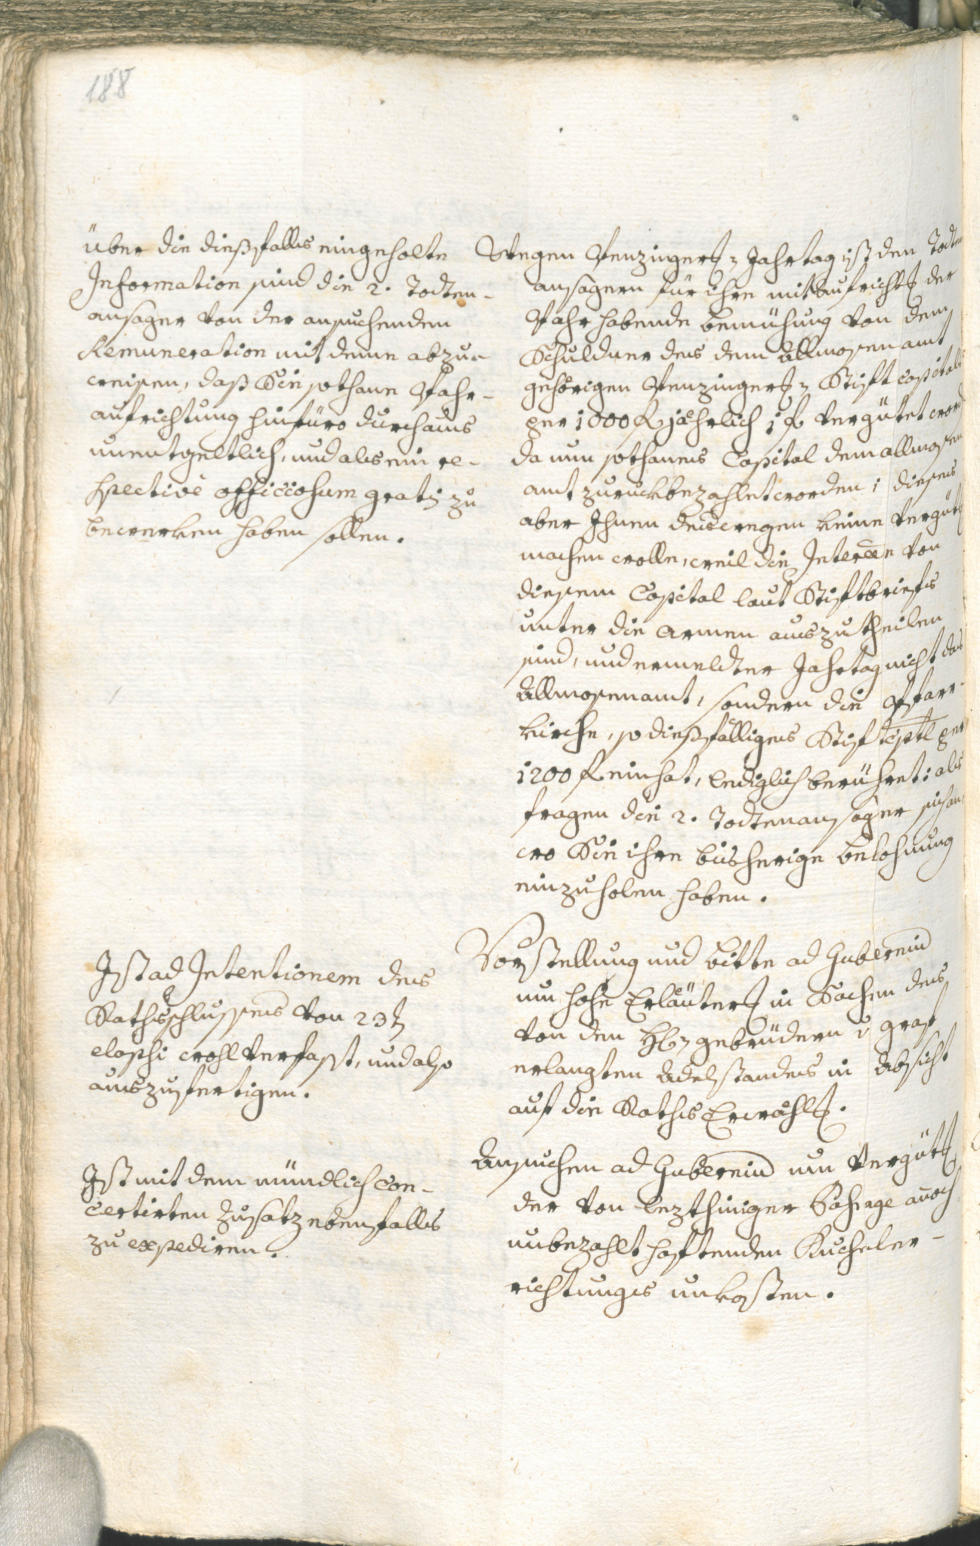 188
Über die dießfalls eingeholte
Information sind die 2. Todten-
ansager von der ansuchenden
Remuneration mit deme abzu-
weisen, daß Sie sothane Bahr-
aufrichtung hinfüro durchaus
unentgeltlich, und als ein re-
spective officiosum gratis zu
bewerken haben sollen.
Wegen Menzingers: Jahrtag ist den Todten
ansagern für ihre mit Aufrichtung der
Bahr habende bemühung von dem
Schuldner des dem Allmosen amt
gehörigen Menzingers: Stift capitals
per 1000 f jährlich 1 f vergütet word
da nun sothanes Capital dem allmosen
amt zurückbezahlet worden; dieses
aber Ihnen deswegen keine vergüt
machen wolle, weil die Interesse von
diesem Capital laut Stiftbriefs
unter die armen auszutheilen
sind, und ermeldter Jahrtag nicht das
Allmosenamt, sondern die Pfarr-
kirche, so dießfälliges Stift Cptl per
1200 f einhat, lediglich berühret: als
fragen die 2. Todtenansager sich an
wo Sie ihre bisherige belohnung
einzuholen haben.
Ist ad Intentionem des
Rathsschlusses von 23t
elapsi wohl verfasst, und also
auszufertigen.
Vorstellung und bitte ad Gubernium
um hohe Erläuter in Sachen des
von den HH gebrüdern v Graf
erlangten Adelstandes in Absicht
auf die Raths Erwähl.
Ist mit dem mündlich con-
certirten Zusatz ebenfalls
zu expediren.
Ansuchen ad Gubernium um Vergüt
der von lezthiniger annoch
unbezahlt haftenden Kucheler-
richtungs unkosten.